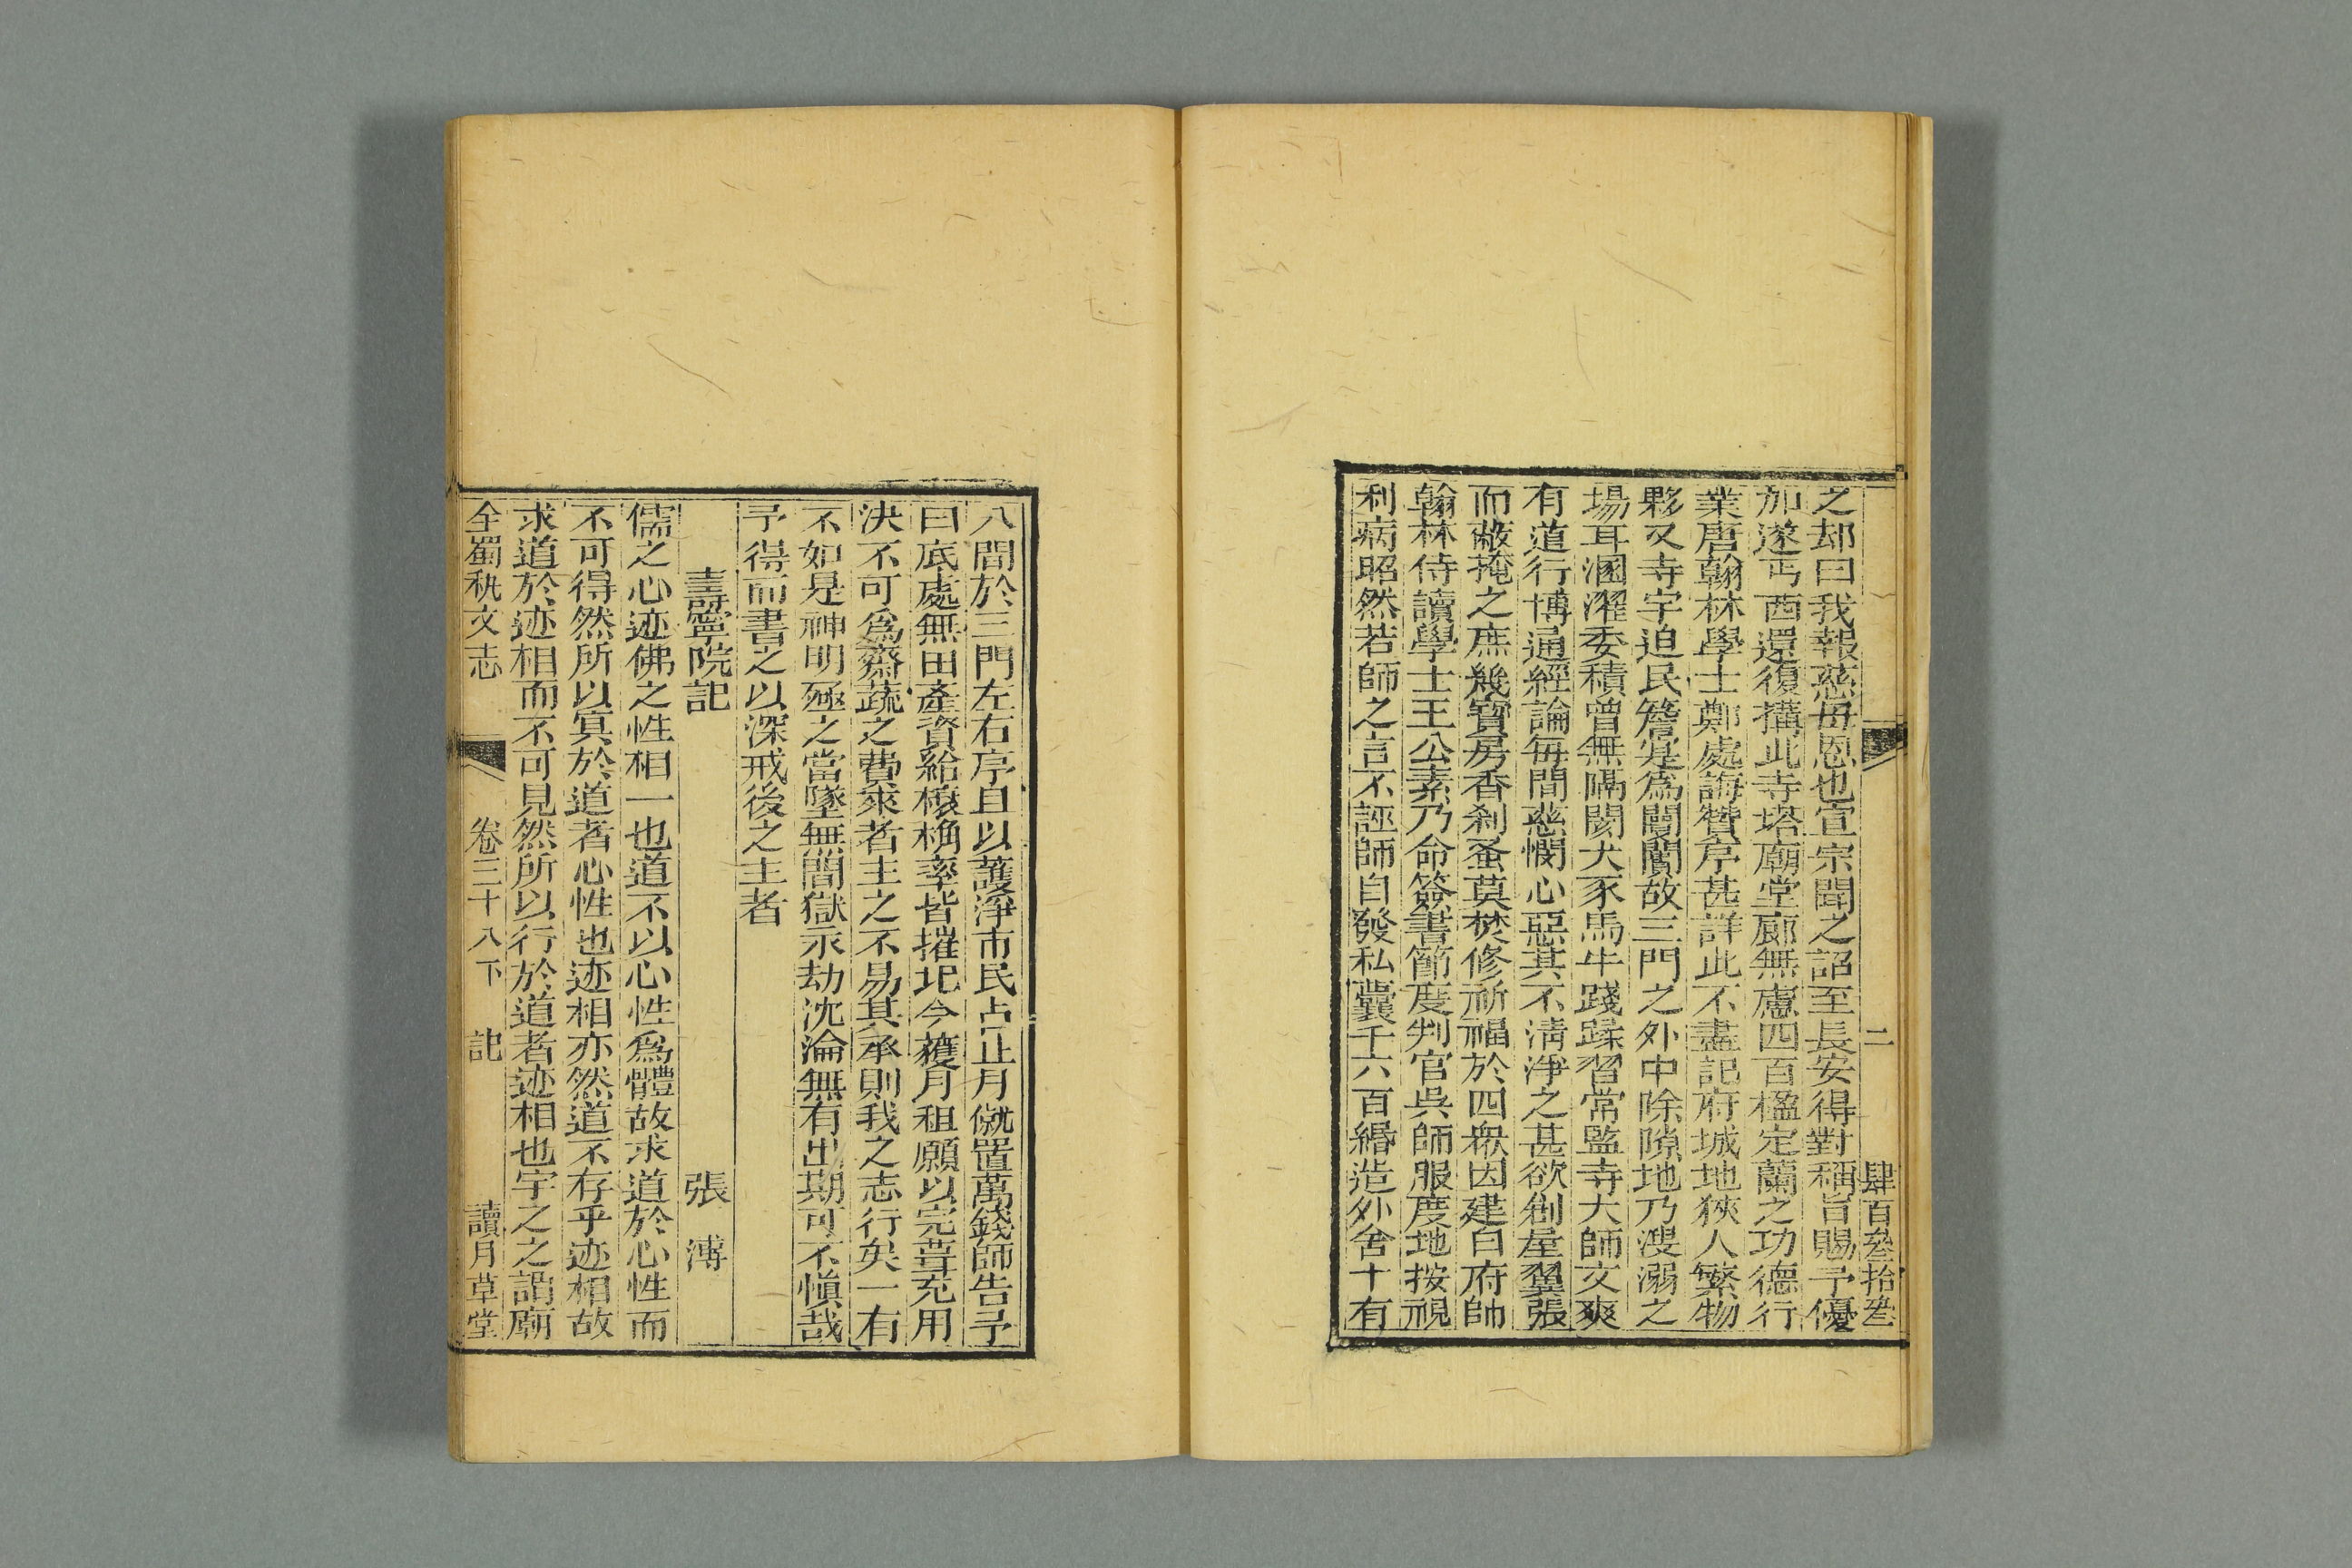 二　肆百叁拾叁
之却曰我報慈母恩也宣宗聞之詔至長安得對稱旨賜予優
加遂丐西還復搆此寺塔廟堂廊無慮四百楹定蘭之功德行
業唐翰林學士鄭處誨贊序甚詳此不盡記府城地狹人繁物
夥又寺宇迫民簷寔爲闤闠故三門之外中除隙地乃溲溺之
場耳溷濯委積曾無隔閡犬豕馬牛踐蹂習常監寺大師文爽
有道行博通經論每間慈憫心惡其不清淨之甚欲剏屋翼張
而蔽掩之庶幾寶房香刹蚤莫焚修祈福於四衆因建白府帥
翰林侍讀學士王公素乃命簽書節度判官吳師服度地按視
利病昭然若師之言不誣師自發私囊千六百緡造外舍十有
八間於三門左右序且以護淨市民占止月僦置萬錢師告予
曰底處無田產資給榱桷率皆摧圯今穫月租願以完葺充用
決不可爲齋蔬之費來者主之不易其承則我之志行矣一有
不如是神明殛之當墜無間獄示劫沈淪無有出期可不愼哉
予得而書之以深戒後之主者
壽寧院記　張溥
儒之心迹佛之性相一也道不以心性爲體故求道於心性而
不可得然所以寘於道者心性也迹相亦然道不存乎迹相故
求道於迹相而不可見然所以行於道者迹相也宇之之謂廟
全蜀秇文志　卷三十八下　記　讀月草堂